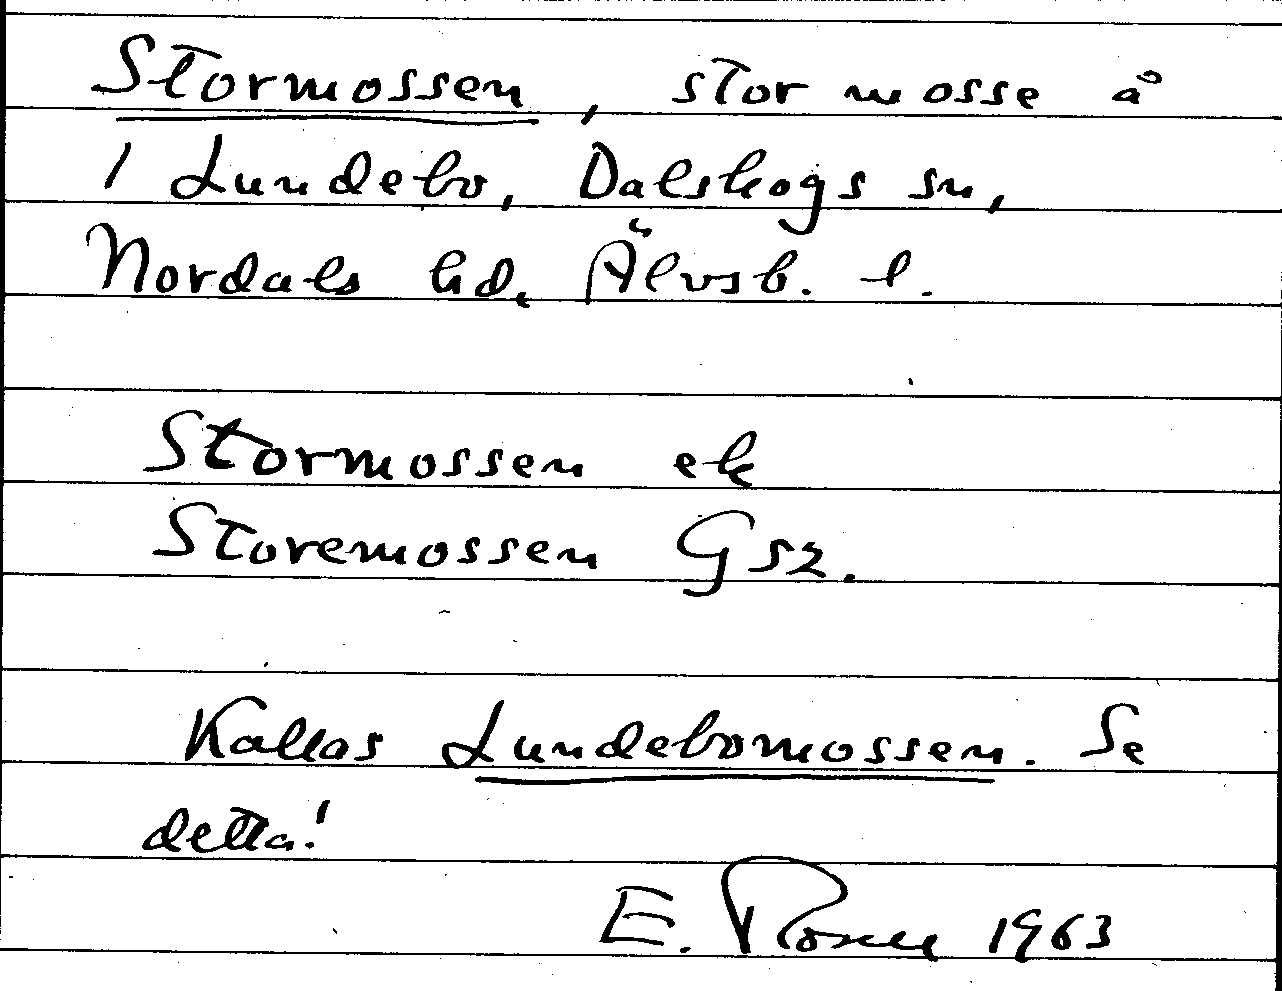 Stormossen, stor mosse å
1 Lundebo, Dalskogs sn,
Nordals hd, Älvsb. l.
Stormossen ek
Storemossen Gsz.
Kallas Lundebomossen. Se
detta!
E. 1963